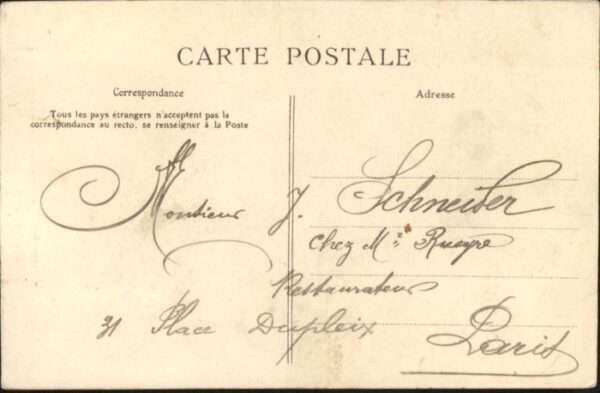 CARTE POSTALE
Correspondance
Adresse
Tous les pays étrangers n'acceptent pas la
correspondance au recto, se renseigner à la Poste
Monsieur J. Schneider
Chez Mr Rueyre
Restaurateur
31 Place Dupleix
Paris